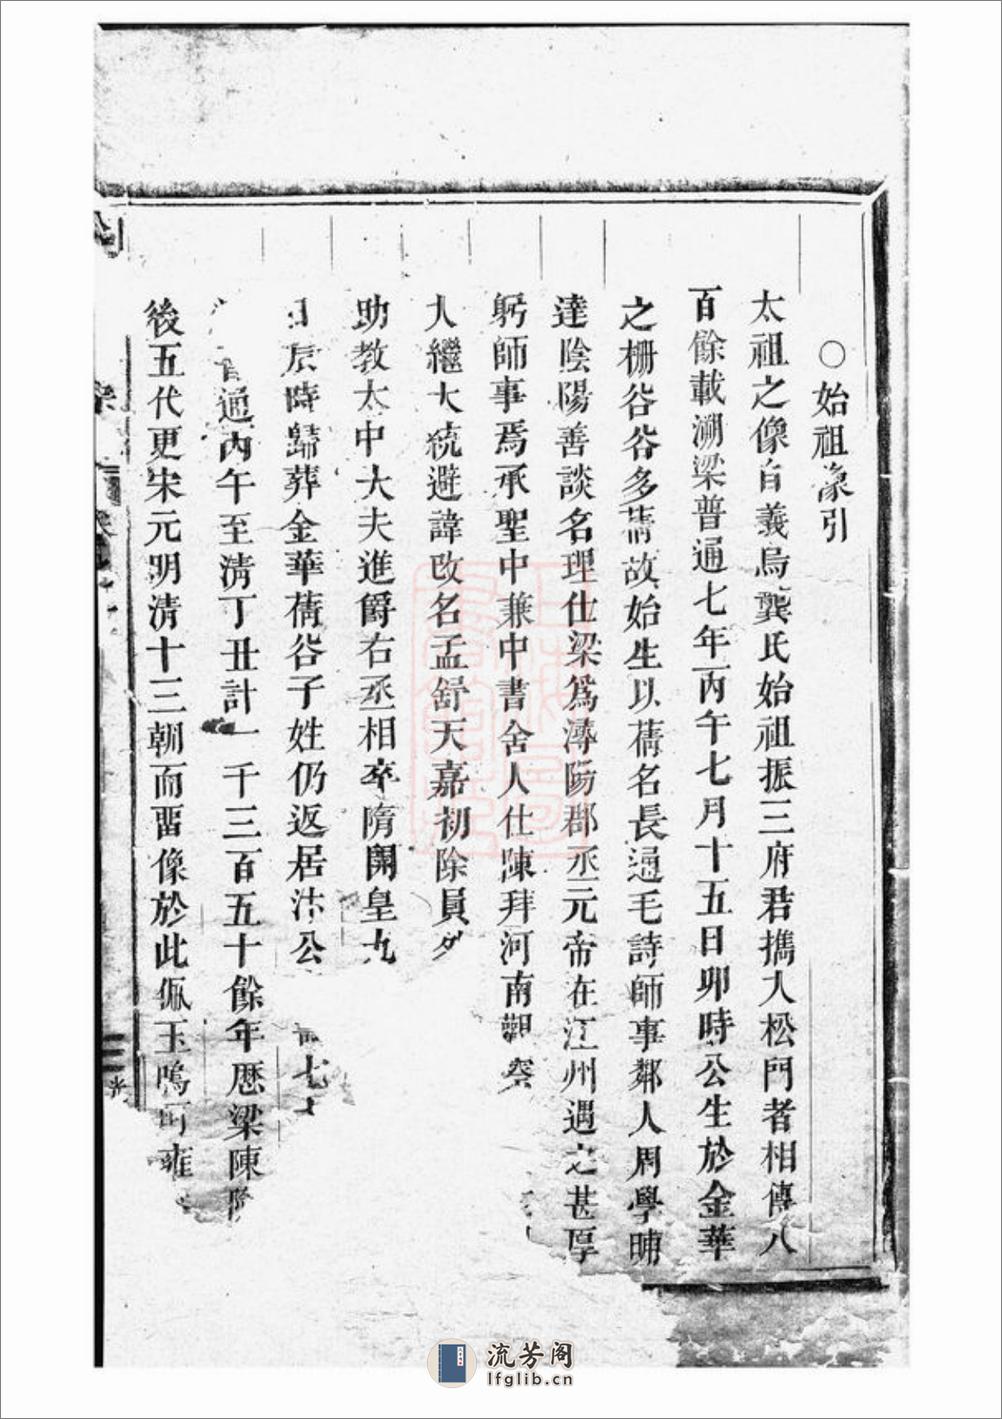 ○始祖像引
太祖之像自義烏龔氏始祖振三府君攜入松門者相傳八
百餘載溯梁普通七年丙午七月十五日卯時公生於金華
之柵谷谷多蒨故始生以蒨名長通毛詩師事鄰人周學晡
達陰陽善談名理仕梁爲潯陽郡丞元帝在江州遇之甚厚
躬師事焉承聖中兼中書舍人仕陳拜河南觀察
人繼大統避諱改名孟舒天嘉初除員
助教太中大夫進爵右丞相卒隋開皇九
辰時歸葬金華蒨谷子姓仍返居沭公 七十
普通丙午至清丁丑計一千三百五十餘年歷梁陳隋
後五代更宋元明清十三朝而畱像於此佩玉鳴 雍
流芳阁
lfglib.cn